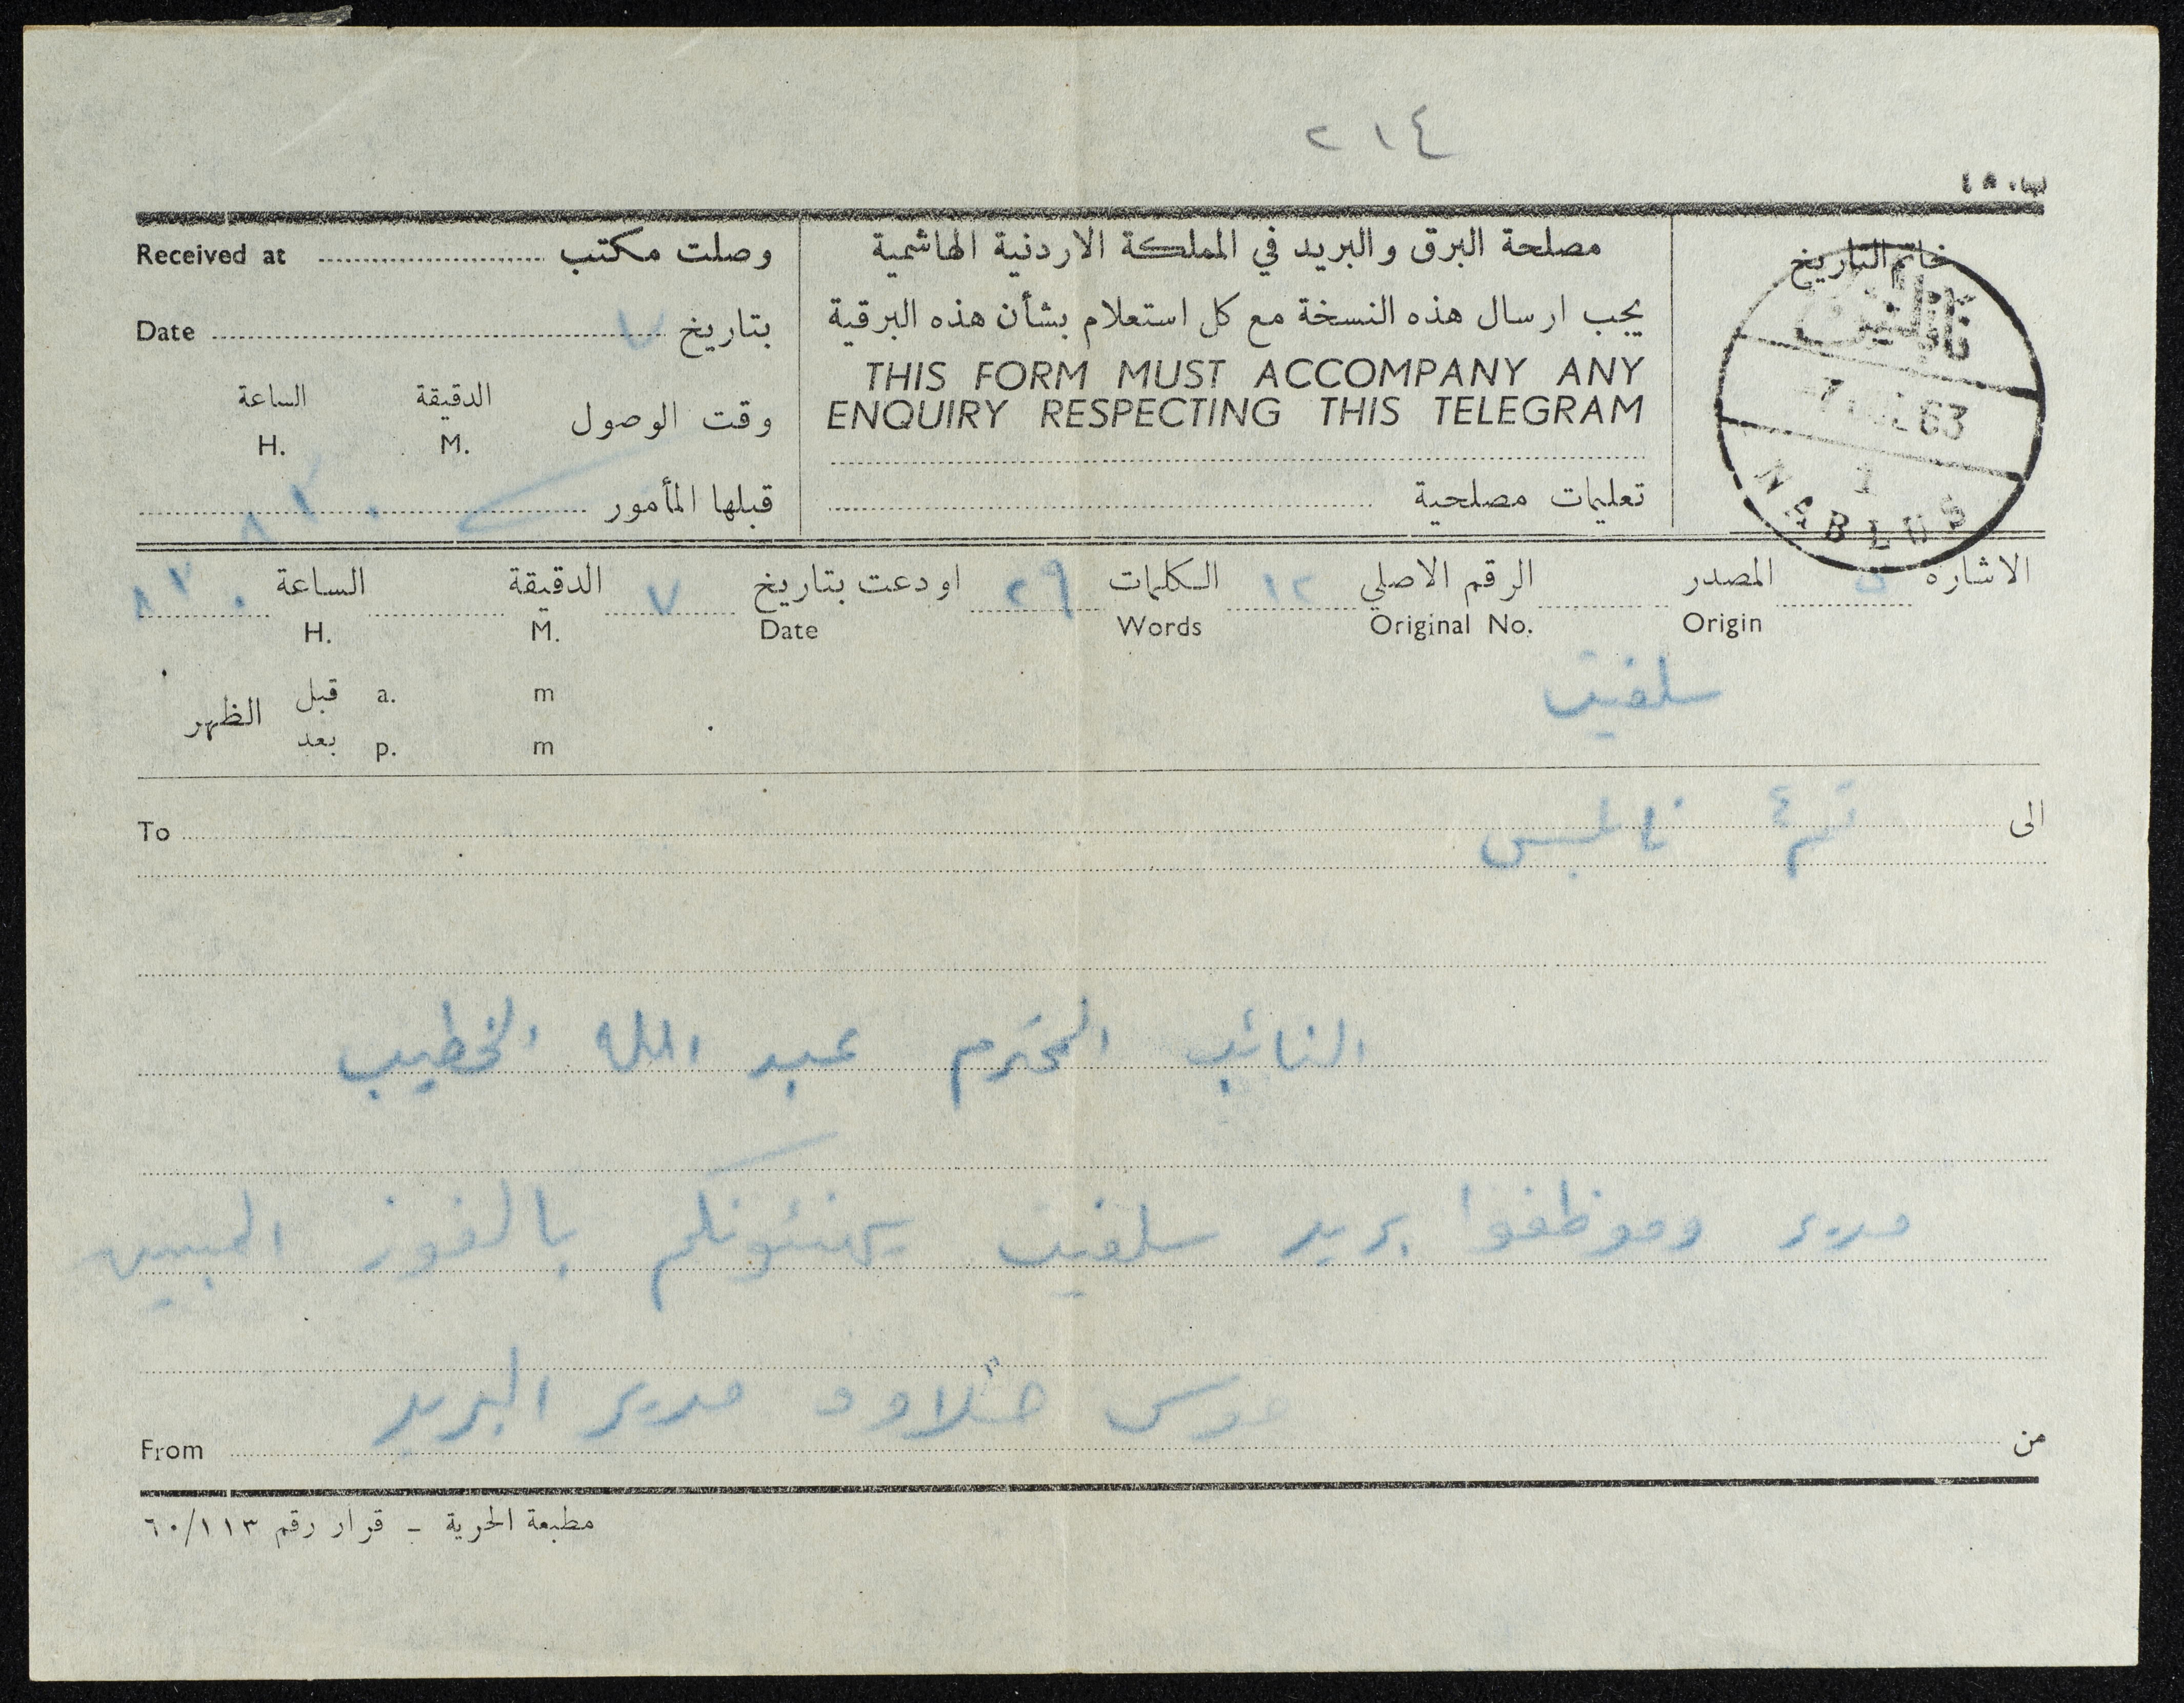 ٢١٤
خاتم التاريخ
نابلس
63
1
NABLUS
مصلحة البرق والبريد في المملكة الاردنية الهاشمية
يجب ارسال هذه النسخة مع كل استعلام بشأن هذه البرقية
THIS FORM MUST ACCOMPANY ANY
ENQUIRY RESPECTING THIS TELEGRAM
تعليمات مصلحية
وصلت مكتب Received at
بتاريخ ٧ Date
وقت الوصول الدقيقة الساعة
M. H.
قبلها المأمور
الاشاره المصدر الرقم الاصلي ١٢ الكلمات ٢٩ اودعت بتاريخ ٧ الدقيقة الساعة
Origin Original No. Words Date M. H.
سلفيت
قبل a. m
الظهر
بعد p. m
الى نابلس To
النائب المحترم عبد الله الخطيب
مدير وموظفوا بريد سلفيت يهنئونكم بالفوز المبين
مدير البريد
من From
مطبعة الحرية - قرار رقم ٦٠/١١٣